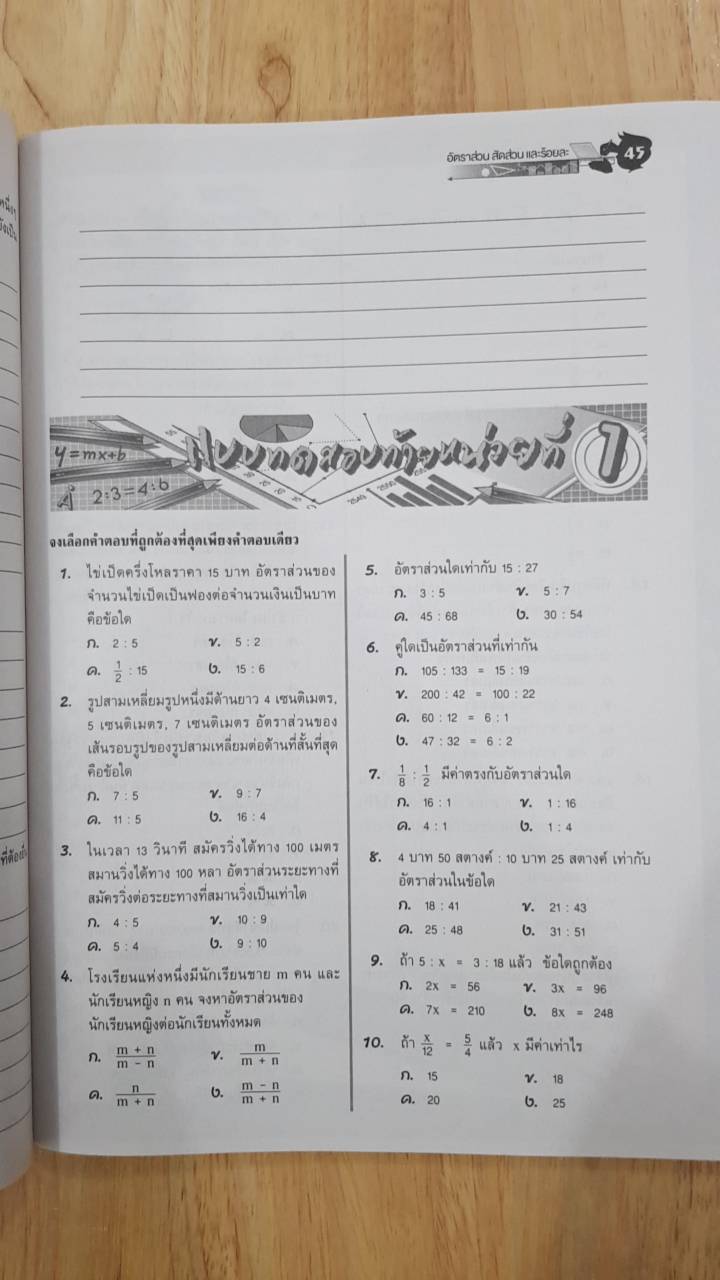 อัตราส่วน สัดส่วน และร้อยละ
45
y = mx+b
2:3 = 4:6
แบบทดสอบท้ายหน่วยที่ 1
จงเลือกคำตอบที่ถูกต้องที่สุดเพียงคำตอบเดียว
1. ไข่เป็ดครึ่งโหลราคา 15 บาท อัตราส่วนของ
จำนวนไข่เป็ดเป็นฟองต่อจำนวนเงินเป็นบาท
คือข้อใด
ก. 2 : 5 ข. 5 : 2
ค. 1/2 : 15 ง. 15 : 6
2. รูปสามเหลี่ยมรูปหนึ่งมีด้านยาว 4 เซนติเมตร,
5 เซนติเมตร, 7 เซนติเมตร อัตราส่วนของ
เส้นรอบรูปของรูปสามเหลี่ยมต่อด้านที่สั้นที่สุด
คือข้อใด
ก. 7 : 5 ข. 9 : 7
ค. 11 : 5 ง. 16 : 4
3. ในเวลา 13 วินาที สมัครวิ่งได้ทาง 100 เมตร
สมานวิ่งได้ทาง 100 หลา อัตราส่วนระยะทางที่
สมัครวิ่งต่อระยะทางที่สมานวิ่งเป็นเท่าใด
ก. 4 : 5 ข. 10 : 9
ค. 5 : 4 ง. 9 : 10
4. โรงเรียนแห่งหนึ่งมีนักเรียนชาย m คน และ
นักเรียนหญิง n คน จงหาอัตราส่วนของ
นักเรียนหญิงต่อนักเรียนทั้งหมด
ก. (m + n)/(m - n) ข. m/(m + n)
ค. n/(m + n) ง. (m - n)/(m + n)
5. อัตราส่วนใดเท่ากับ 15 : 27
ก. 3 : 5 ข. 5 : 7
ค. 45 : 68 ง. 30 : 54
6. คู่ใดเป็นอัตราส่วนที่เท่ากัน
ก. 105 : 133 = 15 : 19
ข. 200 : 42 = 100 : 22
ค. 60 : 12 = 6 : 1
ง. 47 : 32 = 6 : 2
7. 1/8 : 1/2 มีค่าตรงกับอัตราส่วนใด
ก. 16 : 1 ข. 1 : 16
ค. 4 : 1 ง. 1 : 4
8. 4 บาท 50 สตางค์ : 10 บาท 25 สตางค์ เท่ากับ
อัตราส่วนในข้อใด
ก. 18 : 41 ข. 21 : 43
ค. 25 : 48 ง. 31 : 51
9. ถ้า 5 : x = 3 : 18 แล้ว ข้อใดถูกต้อง
ก. 2x = 56 ข. 3x = 96
ค. 7x = 210 ง. 8x = 248
10. ถ้า x/12 = 5/4 แล้ว x มีค่าเท่าไร
ก. 15 ข. 18
ค. 20 ง. 25